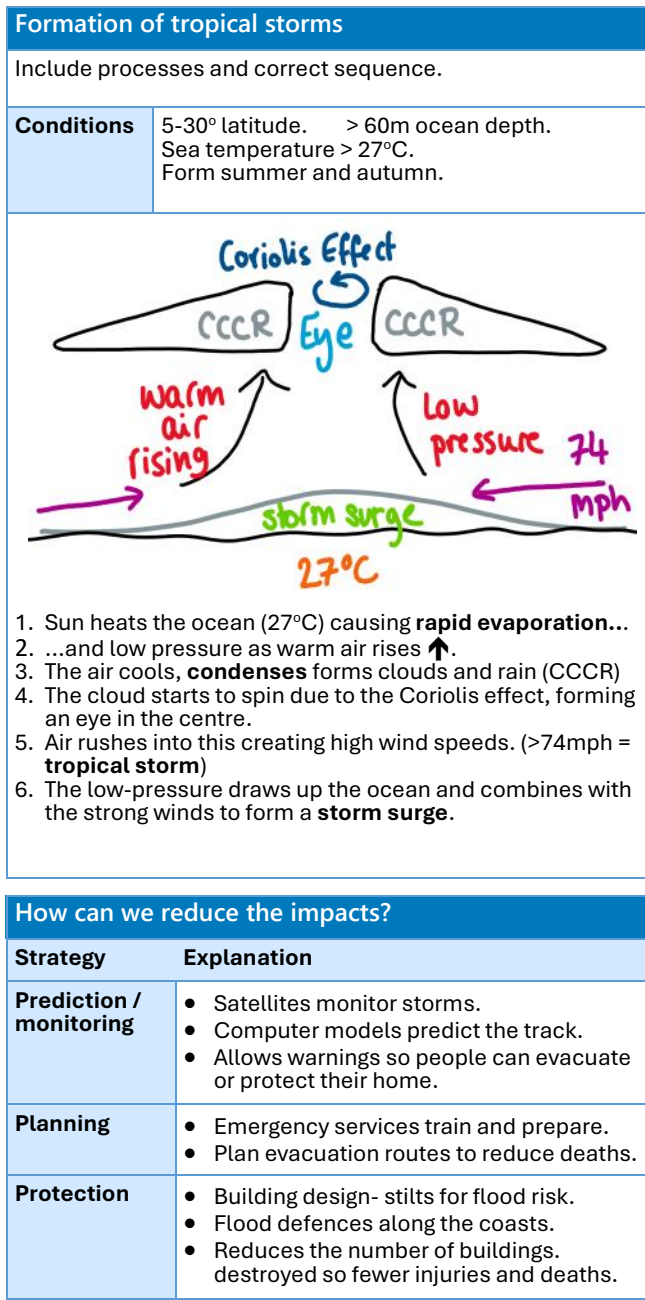 Formation of tropical storms
Include processes and correct sequence.
Conditions
5-30° latitude. > 60m ocean depth.
Sea temperature > 27°C.
Form summer and autumn.
Coriolis Effect
CCCR
Eye
CCCR
warm
air
rising
Low
pressure
74
mph
storm surge
27°C
1. Sun heats the ocean (27°C) causing rapid evaporation...
2. ...and low pressure as warm air rises ↑.
3. The air cools, condenses forms clouds and rain (CCCR)
4. The cloud starts to spin due to the Coriolis effect, forming
an eye in the centre.
5. Air rushes into this creating high wind speeds. (>74mph =
tropical storm)
6. The low-pressure draws up the ocean and combines with
the strong winds to form a storm surge.
How can we reduce the impacts?
Strategy Explanation
Prediction /
monitoring
● Satellites monitor storms.
● Computer models predict the track.
● Allows warnings so people can evacuate
or protect their home.
Planning
● Emergency services train and prepare.
● Plan evacuation routes to reduce deaths.
Protection
● Building design- stilts for flood risk.
● Flood defences along the coasts.
● Reduces the number of buildings.
destroyed so fewer injuries and deaths.